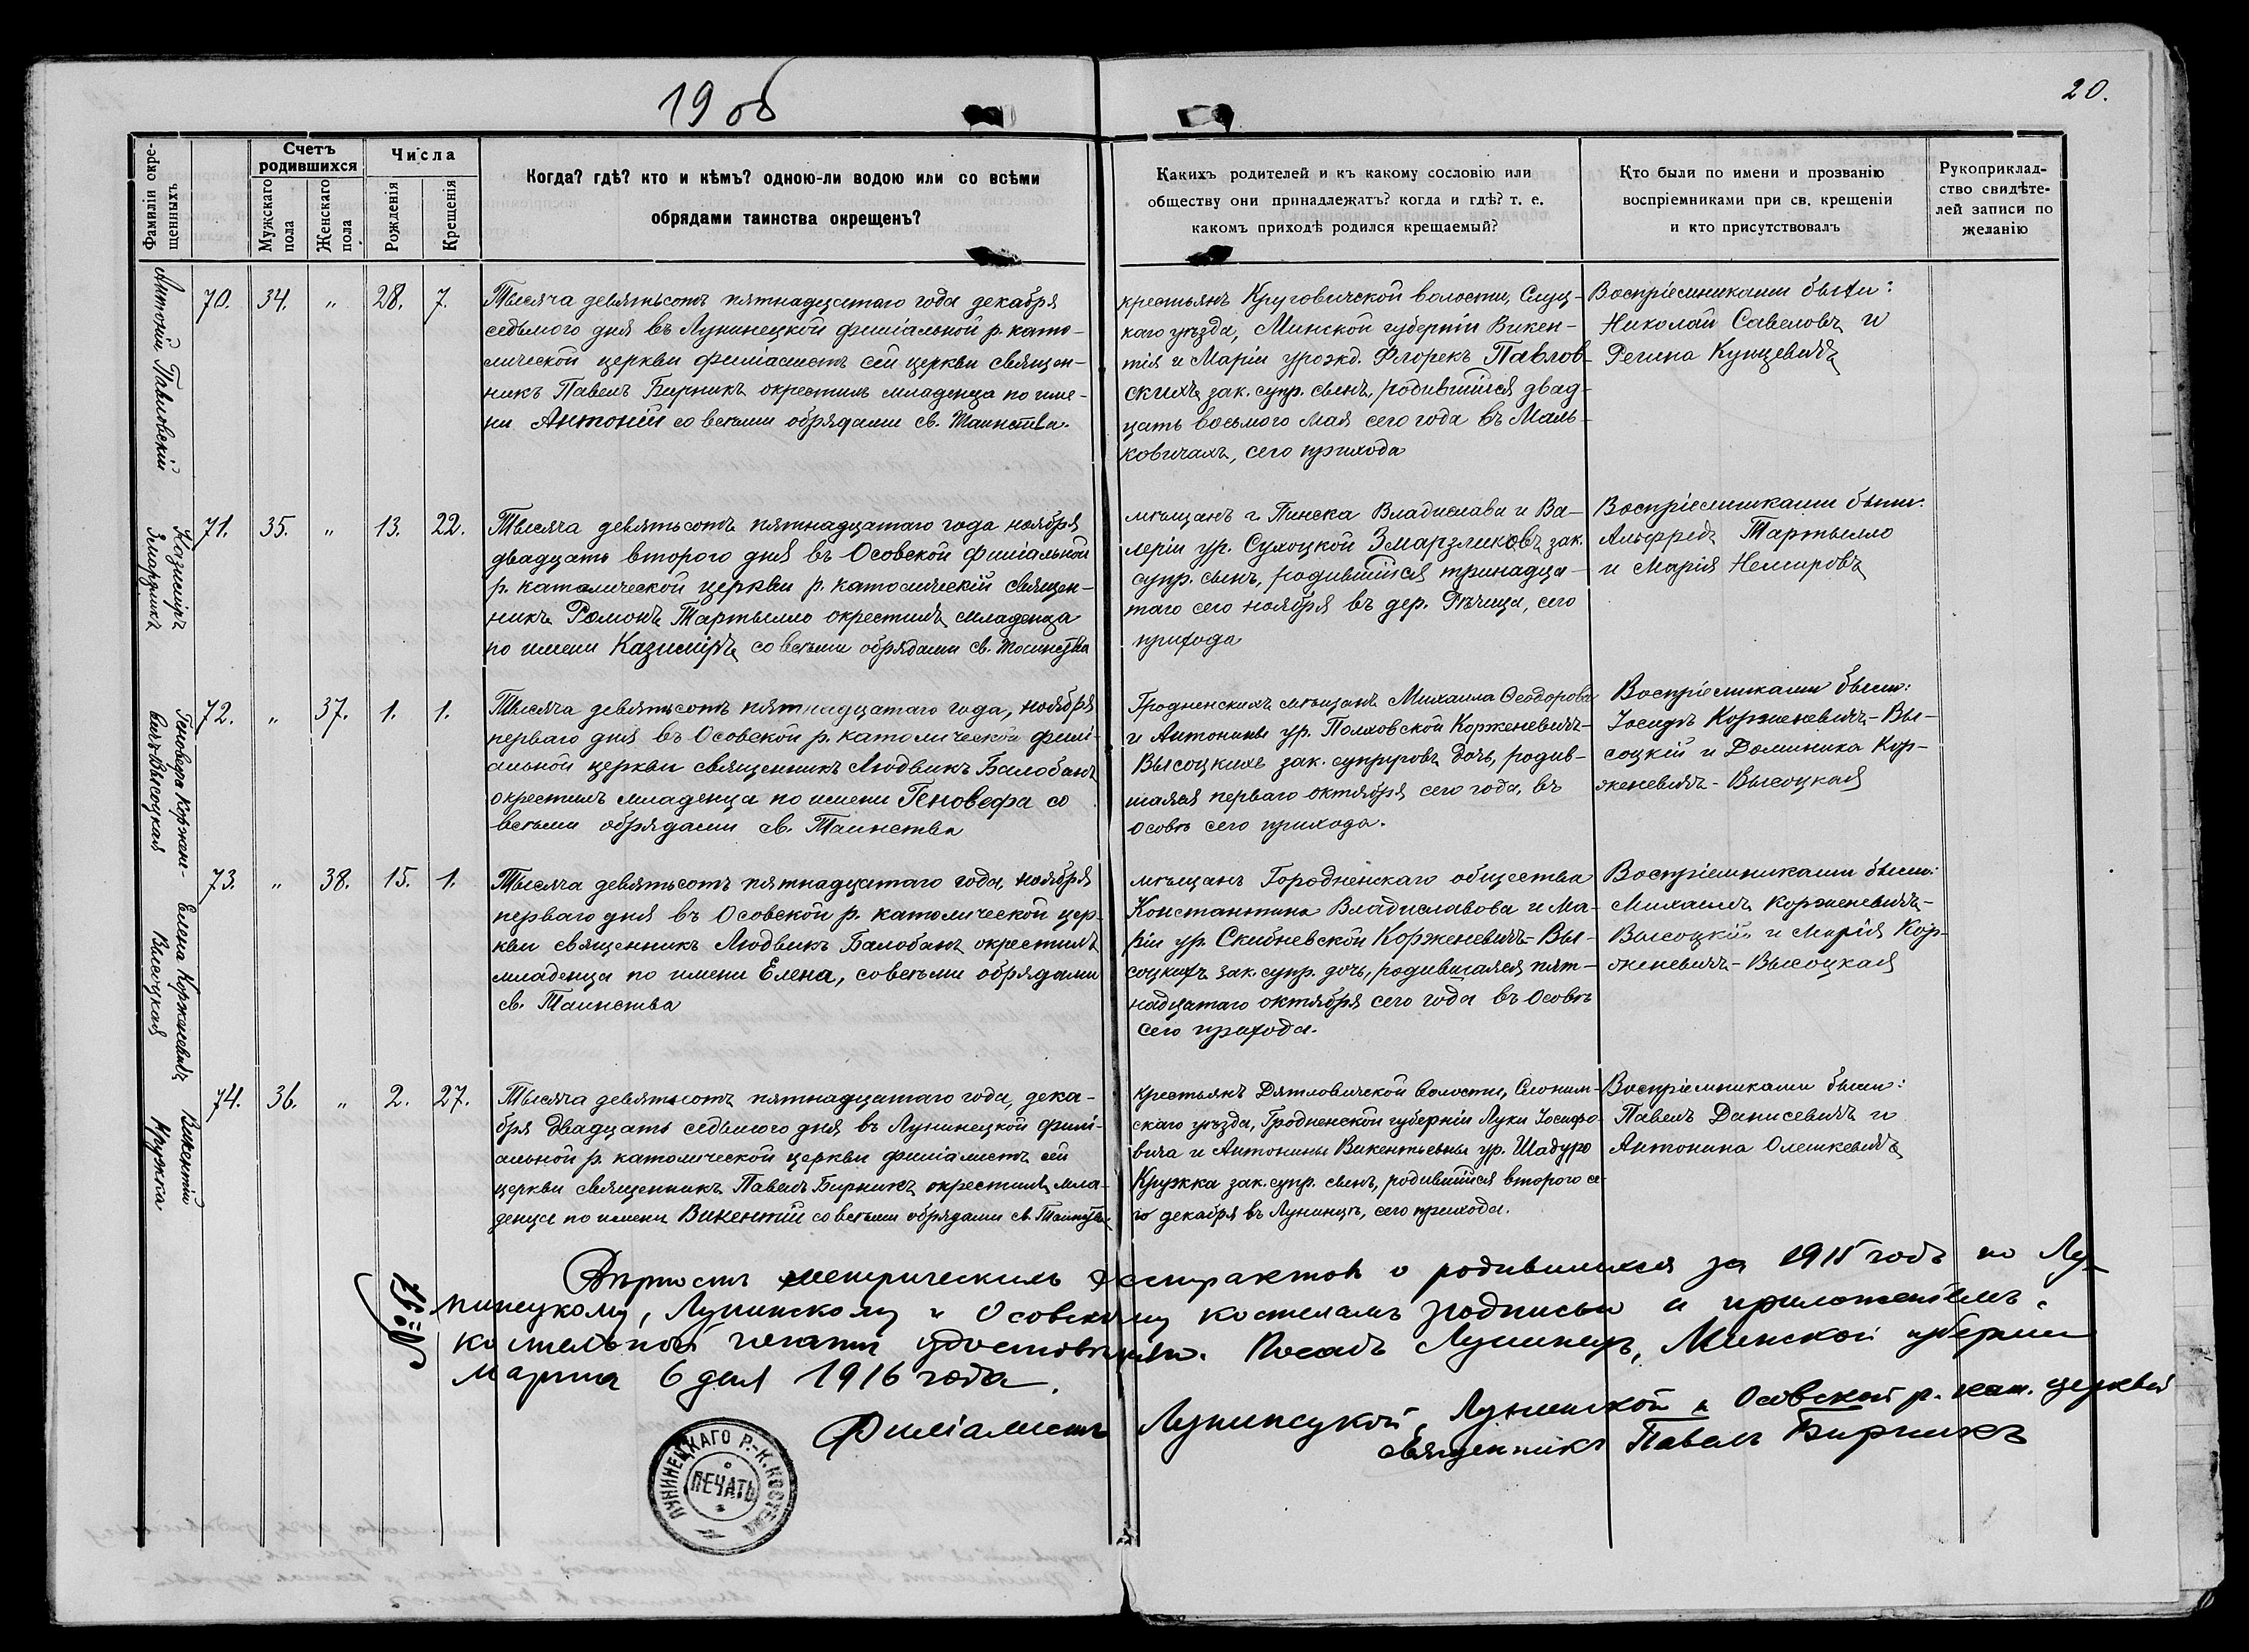 1908
20.
Фамилiи окре-
щенныхъ
Счетъ
родившихся
Мужскаго
пола
Женскаго
пола
Числа
Рожденiя
Крещенiя
Когда? гдѣ? кто и кѣмъ? одною-ли водою или со всѣми
обрядами таинства окрещенъ?
Какихъ родителей и къ какому сословiю или
обществу они принадлежатъ? когда и гдѣ? т. е.
какомъ приходѣ родился крещаемый?
Кто были по имени и прозванiю
воспрiемниками при св. крещенiи
и кто присутствовалъ
Рукоприклад-
ство свидѣте-
лей записи по
желанiю
Антонiй Павловскiй
70. 34. „ 28. 7.
Тысяча девятьсотъ пятнадцатаго года декабря
седьмого дня въ Лунинецкой филiальной р. като-
лической церкви филiалистъ сей церкви священ-
никъ Павелъ Бирникъ окрестилъ младенца по име-
ни Антонiй со всѣми обрядами св. Таинства.
крестьянъ Круговичской волости, Слуц-
каго уѣзда, Минской губернiи Викен-
тiя и Марiи урожд. Флорекъ Павлов-
скихъ зак. супр. сынъ, родившiйся двад-
цать восьмого мая сего года въ Маль-
ковичахъ, сего прихода
Воспрiемниками были:
Николай Савеловъ и
Регина Кунцевичъ
Казимiръ
Змарзликъ
71. 35. „ 13. 22.
Тысяча девятьсотъ пятнадцатаго года ноября
двадцать второго дня въ Осовской филiальной
р. католической церкви р. католическiй священ-
никъ Ромонъ Тартылло окрестилъ младенца
по имени Казимiръ со всѣми обрядами св. Таинства
мѣщанъ г. Пинска Владислава и Ва-
лерiи ур. Сухоцкой Змарзликовъ зак.
супр. сынъ, родившiйся тринадца-
таго сего ноября въ дер. Рѣчица, сего
прихода
Воспрiемниками были:
Альфредъ Тартылло
и Марiя Немировъ
Геновефа Коржене-
вичъ-Высоцкая
72. „ 37. 1. 1.
Тысяча девятьсотъ пятнадцатаго года, ноября
перваго дня въ Осовской р. католической филi-
альной церкви священникъ Людвикъ Балобанъ
окрестилъ младенца по имени Геновефа со
всѣми обрядами св. Таинства
Гродненскихъ мѣщанъ Михаила Ѳеодорова
и Антонины ур. Полховской Корженевичъ-
Высоцкихъ зак. супруговъ дочь, родив-
шаяся перваго октября сего года, въ
Осовѣ сего прихода.
Воспрiемниками были:
Iосифъ Корженевичъ-Вы-
соцкiй и Доминика Кор-
женевичъ-Высоцкая
Елена Корженевичъ
Высоцкая
73. „ 38. 15. 1.
Тысяча девятьсотъ пятнадцатаго года, ноября
перваго дня въ Осовской р. католической цер-
кви священникъ Людвикъ Балобанъ окрестилъ
младенца по имени Елена, со всѣми обрядами
св. Таинства
мѣщанъ Городненскаго общества
Константина Владиславова и Ма-
рiи ур. Скибневской Корженевичъ-Вы-
соцкихъ зак. супр. дочь, родившаяся пят-
надцатаго октября сего года въ Осовѣ
сего прихода.
Воспрiемниками были:
Михаилъ Корженевичъ-
Высоцкiй и Марiя Кор-
женевичъ-Высоцкая
Викентiй
Кружка
74. 36. „ 2. 27.
Тысяча девятьсотъ пятнадцатаго года, дека-
бря двадцать седьмого дня въ Лунинецкой филi-
альной р. католической церкви филiалистъ сей
церкви священникъ Павелъ Бирникъ окрестилъ мла-
денца по имени Викентiй со всѣми обрядами св. Таинства
крестьянъ Дятловичской волости, Слоним-
скаго уѣзда, Гродненской губернiи Луки Iосифо-
вича и Антонины Викентьевны ур. Шадуро
Кружка зак. супр. сынъ, родившiйся второго се-
го декабря въ Лунинцѣ, сего прихода.
Воспрiемниками были:
Павелъ Данисевичъ и
Антонина Олешкевичъ
№ 51
Вѣрность метрическихъ экстрактовъ о родившихся за 1915 годъ по Лу-
нинецкому, Лунинскому и Осовскому костеламъ подписью и приложенiемъ
костельной печати удостовѣряю. Посадъ Лунинецъ, Минской губернiи
марта 6 дня 1916 года.
Филiалистъ Лунинецкой, Лунинской и Осовской р. кат. церквей
священникъ Павелъ Бирникъ
ЛУНИНЕЦКАГО Р.-К. КОСТЕЛА
ПЕЧАТЬ